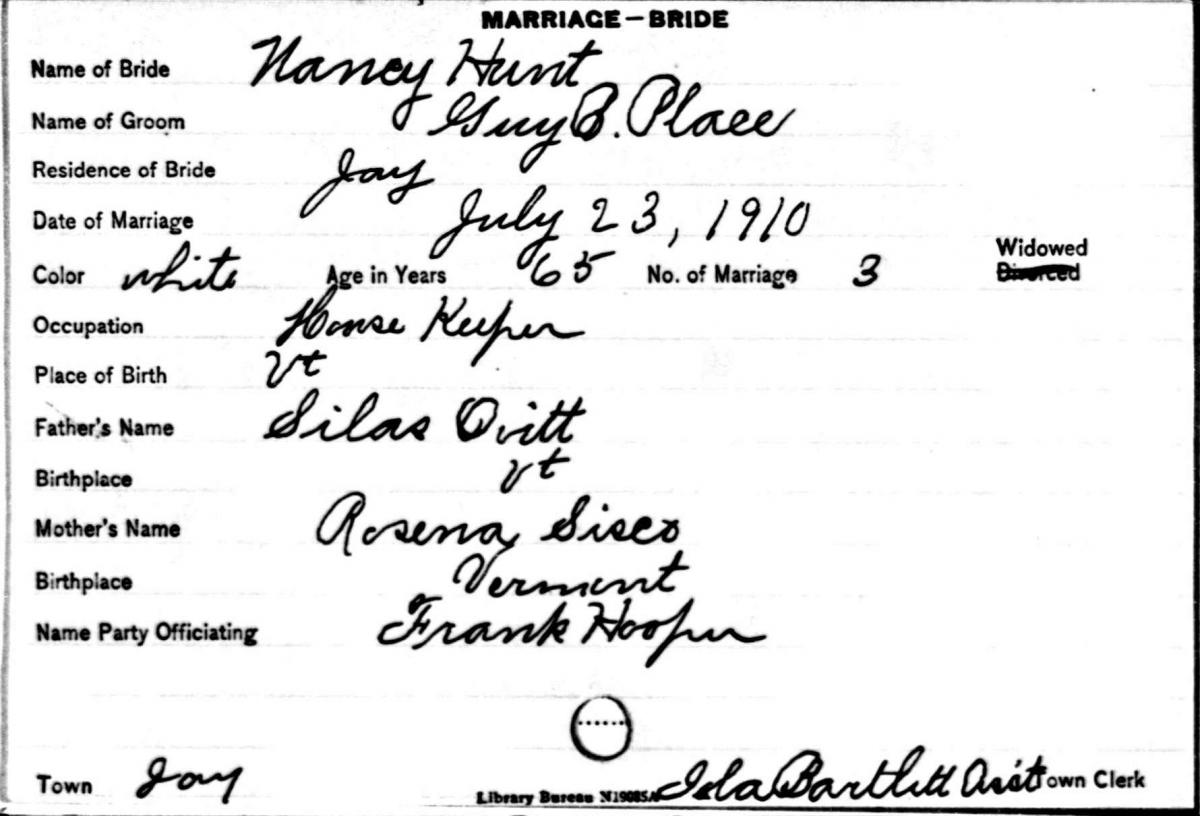 MARRIAGE—BRIDE
Name of Bride Nancy Hunt
Name of Groom Guy B. Place
Residence of Bride Jay
Date of Marriage July 23, 1910
Widowed
Color white Age in Years 65 No. of Marriage 3 Divorced
Occupation House Keeper
Place of Birth Vt
Father's Name Silas Ovitt
Birthplace Vt
Mother's Name Rosena Sisco
Birthplace Vermont
Name Party Officiating Frank Hooper
Town Jay Bartlett Ass't Town Clerk
Library Bureau N19085A